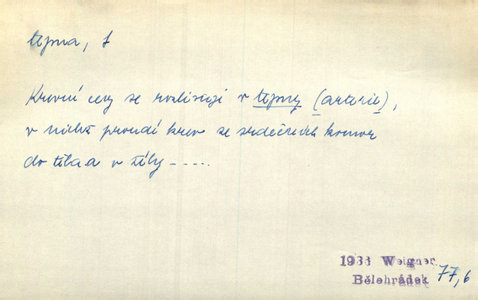 tepna, f
Krevní cevy se rozlišují v tepny (arterie),
v nichž proudí krev ze srdečních komor
do těla a v žíly .....
1933 Weigner
Bělehrádek 77,6